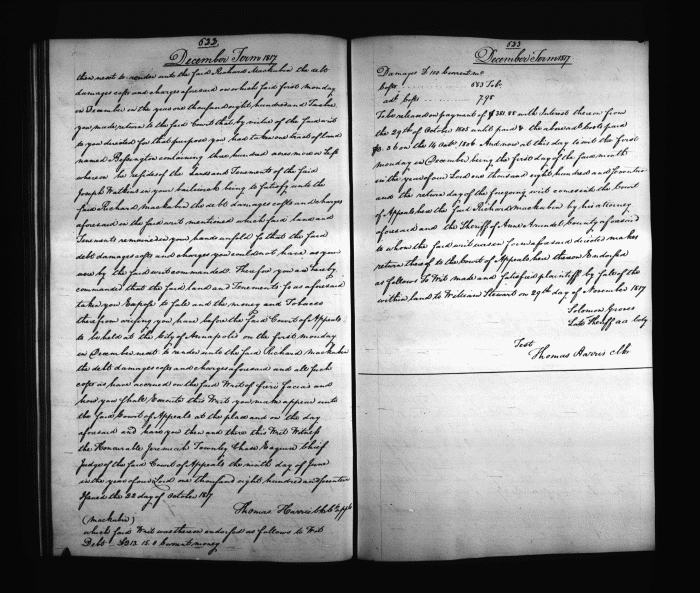 522
December Term 1817
then next to render unto the said Richard Mackubin the debt
damages costs and charges aforesaid on which said first monday
in December in the year one thousand eight hundred and Twelve
you made return to the said Court that by virtue of the said writ
to you directed for that purpose you had taken one tract of land
named containing three hundred acres more or less
whereon he resides of the Lands and Tenements of the said
Joseph Watkins in your bailiwick being to satisfy unto the
said Richard Mackubin the debt damages costs and charges
aforesaid in the said writ mentioned which said land and
Tenements remained in your hands unsold so that the said
debt damages costs and charges you could not have as you
was by the said writ commanded. Therefore you are hereby
commanded that the said land and Tenements so as aforesaid
taken you Expose to Sale and the money and Tobacco
therefrom arising you have before the said Court of Appeals
to be held at the City of Annapolis on the first monday
in December next to render unto the said Richard Mackubin
the debt damages costs and charges aforesaid and all such
costs as have accrued on the said Writ of fieri facias and
how you shall Execute this Writ you make appear unto
the said Court of Appeals at the place and on the day
aforesaid and have you then and there this Writ Witness
the Honourable Jeremiah Townley Chase Esquire Chief
Judge of the said Court of Appeals the ninth day of June
in the year of our Lord one thousand eight hundred and seventeen
Issued the 22 day of October 1817
Thomas Harris Clk Ct Appls
(Mackubin)
which said Writ was thereon endorsed as follows to Wit
Debt £213. 15. 0 Current money
523
December Term 1817
Damages £100 Current mo
Costs 683 Tobo
adl Costs 798
To be released on payment of $381 88 with Interest thereon from
the 29th of October 1805 until paid & the above add costs paid
on the 14 Octr 1806 And now at this day to wit the first
monday in December being the first day of the said month
in the year of our Lord one thousand eight hundred and seventeen
and the return day of the foregoing writ comes into the Court
of Appeals here the said Richard Mackubin by his attorney
aforesaid and the Sheriff of Anne Arundel County aforesaid
to whom the said writ was in form aforesaid directed makes
return thereof to the Court of Appeals here thereon Endorsed
as follows To Wit made and Satisfied plaintiff by Sale of the
within land to William Stewart on 29th day of November 1817
Solomon Groves
Late Sheriff AA Coty
Test
Thomas Harris Clk